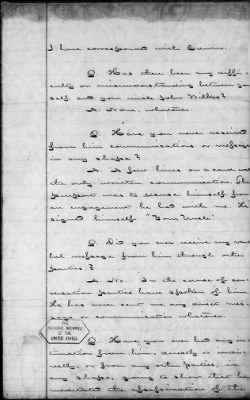 I have correspond with
Q Has there been any diffi-
culty or misunderstanding between your
self and your uncle John Wilkes?
A. None, whatever.
Q. Have you never received
from him communications or message
in any shape?
A. A few lines on a card was
the only written communication The
purport was to excuse himself from
an engagement he had with me. He
signed himself "Your Uncle"
Q. Did you ever receive any ver-
bal message from him through other
parties?
A. No. In the course of con-
versation parties have spoken of him
He has never sent me any direct mes-
sage or communication whatever.
Q. Have you ever had any in-
timation from him, directly or indi-
rectly, or from any other parties, in
any shape, going to show that he
the assassination of the
THE
NATIONAL ARCHIVES
OF THE
UNITED STATES